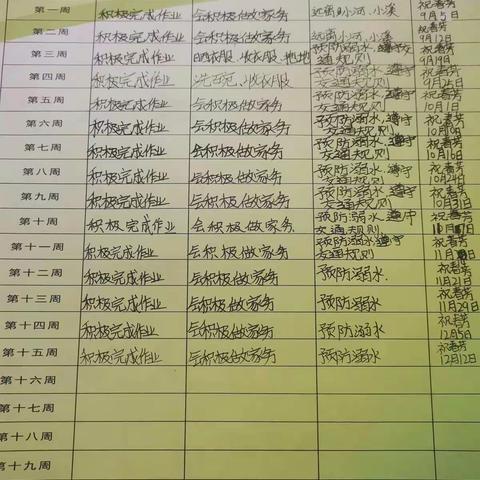 第一周 积极完成作业 会积极做家务 远离小河、小溪 祝春芳 9月5日
第二周 积极完成作业 会积极做家务 远离小河、小溪 祝春芳 9月12日
第三周 积极完成作业 晒衣服、收衣服、拖地 预防溺水、遵守交通规则 祝春芳 9月19日
第四周 积极完成作业 洗碗、收衣服 预防溺水、遵守交通规则 祝春芳
第五周 积极完成作业 会积极做家务 预防溺水、遵守交通规则 祝春芳 10月1日
第六周 积极完成作业 会积极做家务 预防溺水、遵守交通规则 祝春芳
第七周 积极完成作业 会积极做家务 预防溺水、遵守交通规则 祝春芳 10月16日
第八周 积极完成作业 会积极做家务 预防溺水、遵守交通规则 祝春芳 10月24日
第九周 积极完成作业 会积极做家务 预防溺水、遵守交通规则 祝春芳 10月31日
第十周 积极完成作业 会积极做家务 预防溺水、遵守交通规则 祝春芳
第十一周 积极完成作业 会积极做家务 预防溺水、遵守交通规则 祝春芳
第十二周 积极完成作业 会积极做家务 预防溺水 祝春芳 11月21日
第十三周 积极完成作业 会积极做家务 预防溺水 祝春芳 11月29日
第十四周 积极完成作业 会积极做家务 预防溺水 祝春芳 12月5日
第十五周 积极完成作业 会积极做家务 预防溺水 祝春芳 12月12日
第十六周
第十七周
第十八周
第十九周